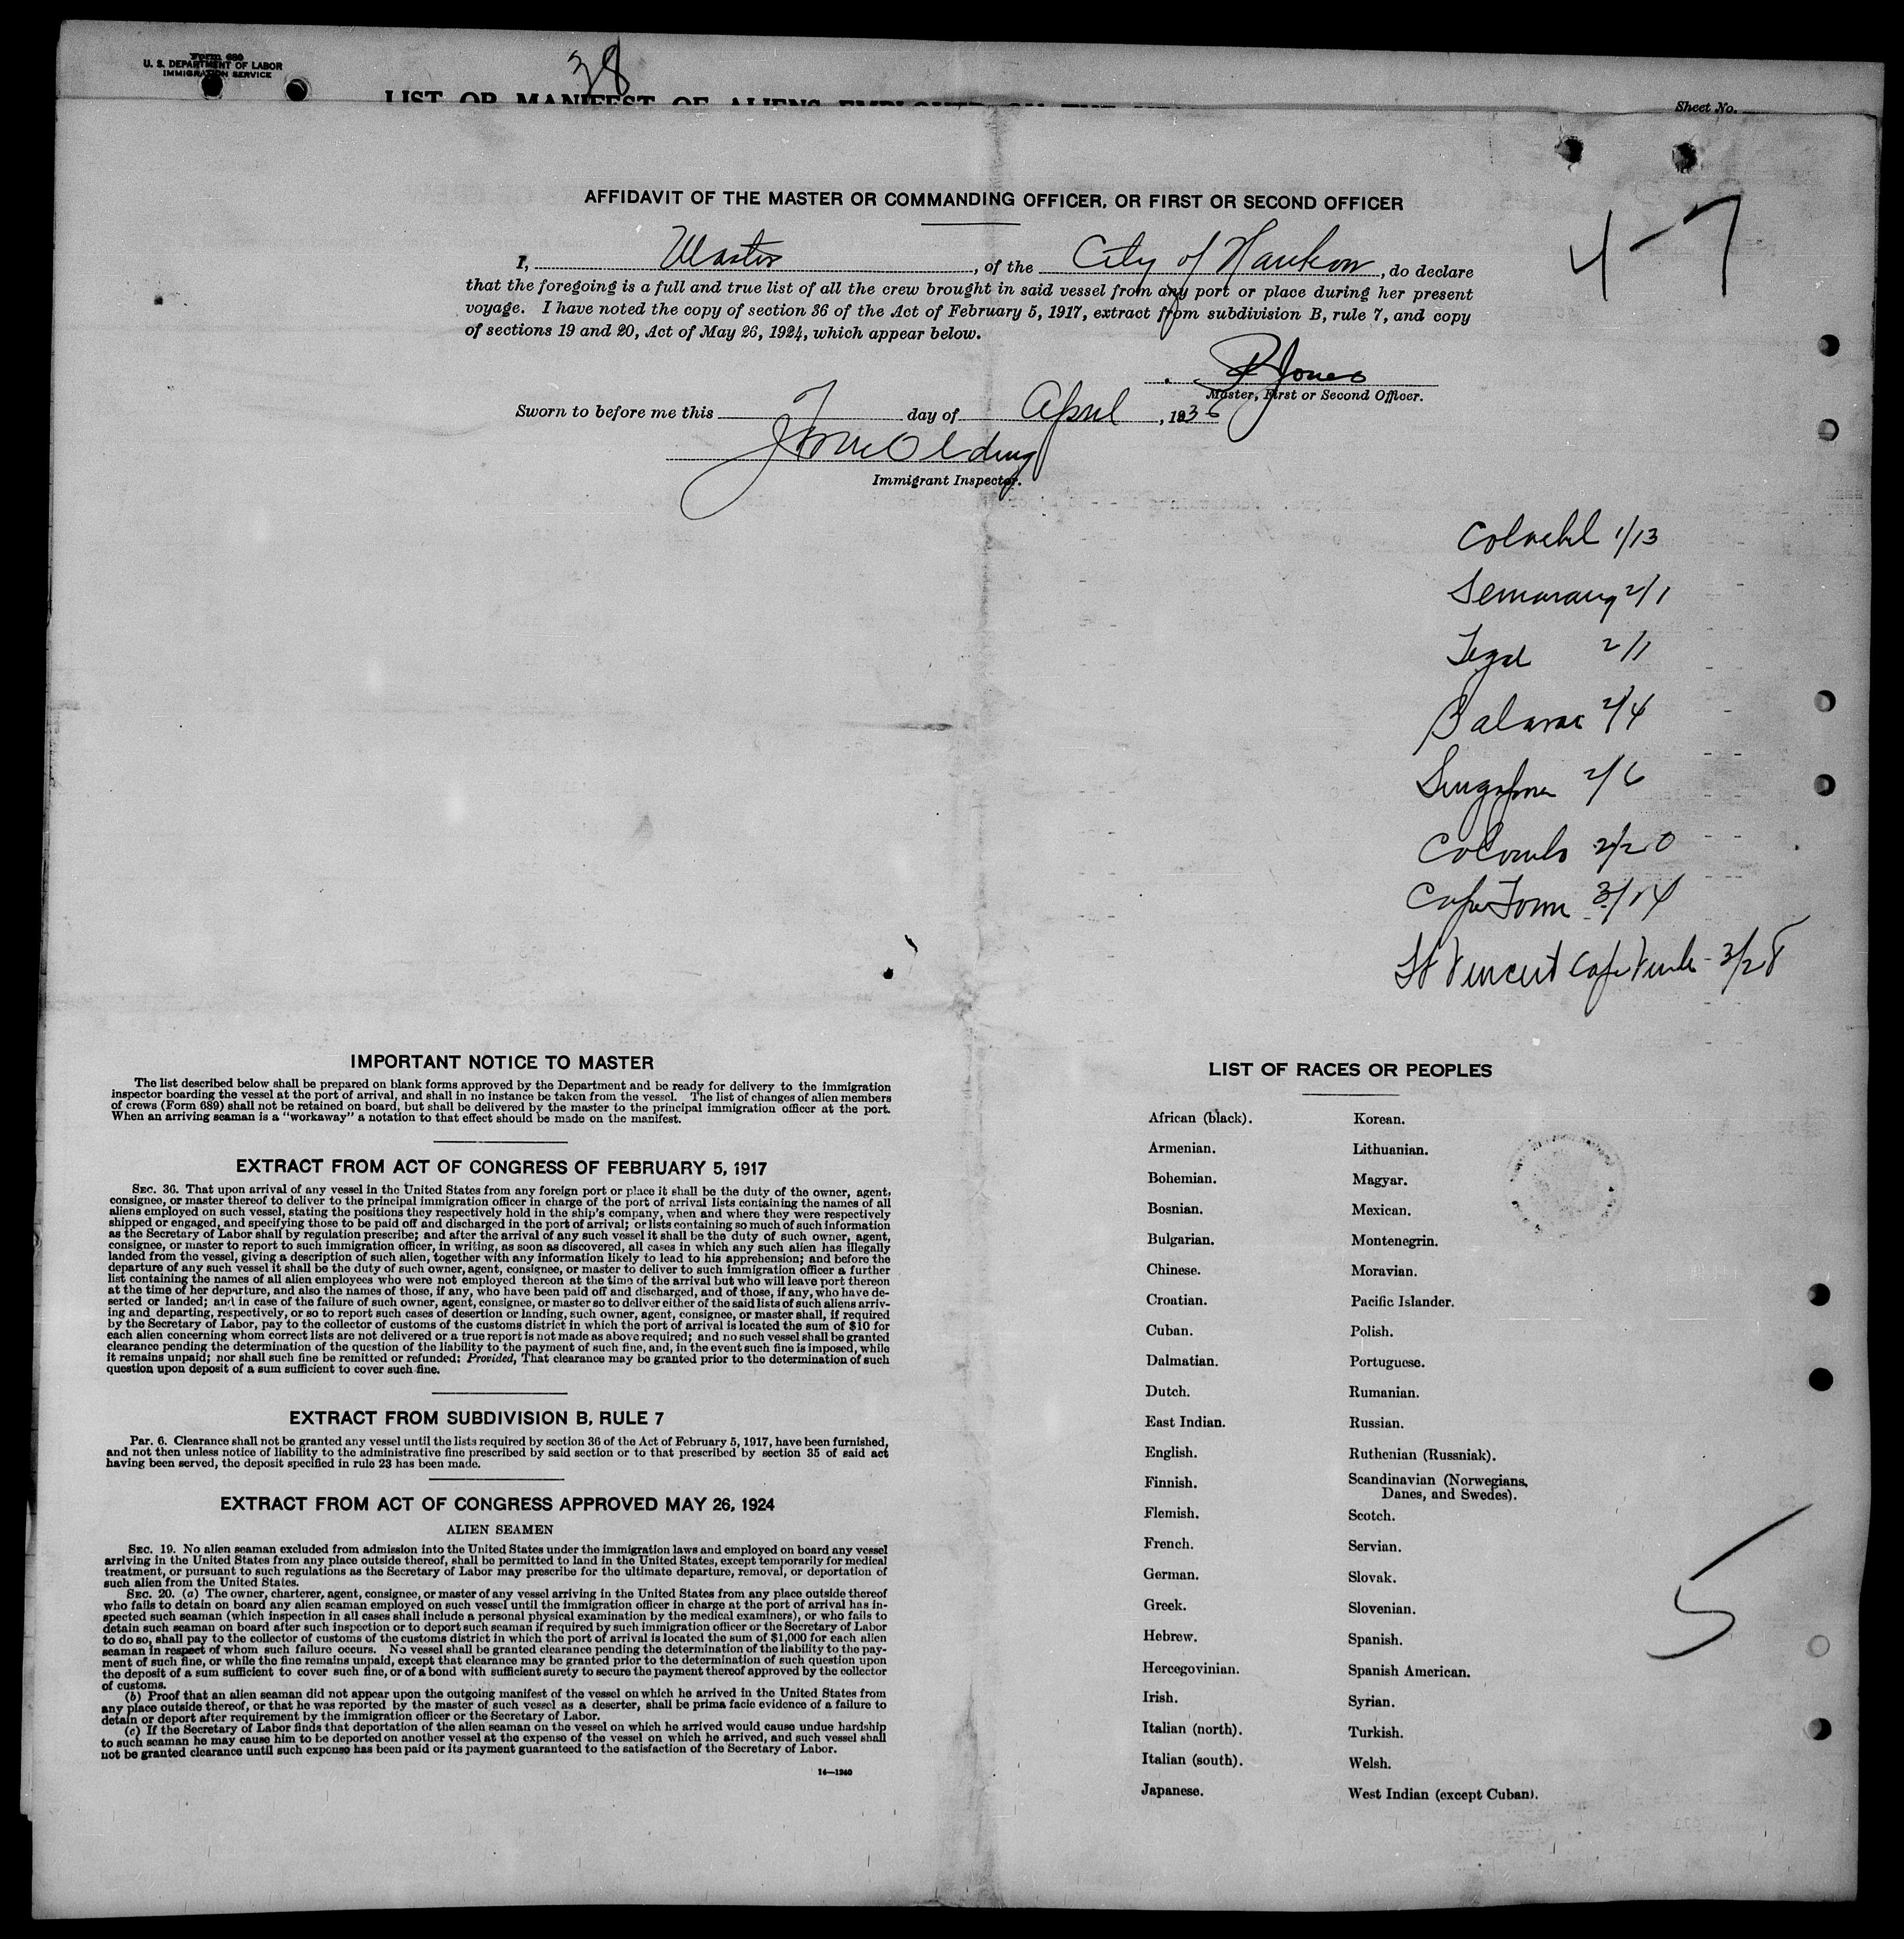 Form 680
U. S. DEPARTMENT OF LABOR
IMMIGRATION SERVICE
38
LIST OR MANIFEST OF ALIENS EMPLOYED ON THE
Sheet No.
4-7
AFFIDAVIT OF THE MASTER OR COMMANDING OFFICER, OR FIRST OR SECOND OFFICER
I, Master, of the City of Hankow, do declare
that the foregoing is a full and true list of all the crew brought in said vessel from any port or place during her present
voyage. I have noted the copy of section 36 of the Act of February 5, 1917, extract from subdivision B, rule 7, and copy
of sections 19 and 20, Act of May 26, 1924, which appear below.
Jones
Master, First or Second Officer.
Sworn to before me this 7 day of April, 1936
Immigrant Inspector.
1/13
Semarang 2/1
Tegal 2/1
2/4
Singapore 2/6
Colombo 2/20
Cape Town 3/14
St Vincent Cape Verde - 3/28
IMPORTANT NOTICE TO MASTER
The list described below shall be prepared on blank forms approved by the Department and be ready for delivery to the immigration
inspector boarding the vessel at the port of arrival, and shall in no instance be taken from the vessel. The list of changes of alien members
of crews (Form 689) shall not be retained on board, but shall be delivered by the master to the principal immigration officer at the port.
When an arriving seaman is a "workaway" a notation to that effect should be made on the manifest.
EXTRACT FROM ACT OF CONGRESS OF FEBRUARY 5, 1917
SEC. 36. That upon arrival of any vessel in the United States from any foreign port or place it shall be the duty of the owner, agent,
consignee, or master thereof to deliver to the principal immigration officer in charge of the port of arrival lists containing the names of all
aliens employed on such vessel, stating the positions they respectively hold in the ship's company, when and where they were respectively
shipped or engaged, and specifying those to be paid off and discharged in the port of arrival; or lists containing so much of such information
as the Secretary of Labor shall by regulation prescribe; and after the arrival of any such vessel it shall be the duty of such owner, agent,
consignee, or master to report to such immigration officer, in writing, as soon as discovered, all cases in which any such alien has illegally
landed from the vessel, giving a description of such alien, together with any information likely to lead to his apprehension; and before the
departure of any such vessel it shall be the duty of such owner, agent, consignee, or master to deliver to such immigration officer a further
list containing the names of all alien employees who were not employed thereon at the time of the arrival but who will leave port thereon
at the time of her departure, and also the names of those, if any, who have been paid off and discharged, and of those, if any, who have de-
serted or landed; and in case of the failure of such owner, agent, consignee, or master so to deliver either of the said lists of such aliens arriv-
ing and departing, respectively, or so to report such cases of desertion or landing, such owner, agent, consignee, or master shall, if required
by the Secretary of Labor, pay to the collector of customs of the customs district in which the port of arrival is located the sum of $10 for
each alien concerning whom correct lists are not delivered or a true report is not made as above required; and no such vessel shall be granted
clearance pending the determination of the question of the liability to the payment of such fine, and, in the event such fine is imposed, while
it remains unpaid; nor shall such fine be remitted or refunded: Provided, That clearance may be granted prior to the determination of such
question upon deposit of a sum sufficient to cover such fine.
EXTRACT FROM SUBDIVISION B, RULE 7
Par. 6. Clearance shall not be granted any vessel until the lists required by section 36 of the Act of February 5, 1917, have been furnished,
and not then unless notice of liability to the administrative fine prescribed by said section or to that prescribed by section 35 of said act
having been served, the deposit specified in rule 23 has been made.
EXTRACT FROM ACT OF CONGRESS APPROVED MAY 26, 1924
ALIEN SEAMEN
SEC. 19. No alien seaman excluded from admission into the United States under the immigration laws and employed on board any vessel
arriving in the United States from any place outside thereof, shall be permitted to land in the United States, except temporarily for medical
treatment, or pursuant to such regulations as the Secretary of Labor may prescribe for the ultimate departure, removal, or deportation of
such alien from the United States.
SEC. 20. (a) The owner, charterer, agent, consignee, or master of any vessel arriving in the United States from any place outside thereof
who fails to detain on board any alien seaman employed on such vessel until the immigration officer in charge at the port of arrival has in-
spected such seaman (which inspection in all cases shall include a personal physical examination by the medical examiners), or who fails to
detain such seaman on board after such inspection or to deport such seaman if required by such immigration officer or the Secretary of Labor
to do so, shall pay to the collector of customs of the customs district in which the port of arrival is located the sum of $1,000 for each alien
seaman in respect of whom such failure occurs. No vessel shall be granted clearance pending the determination of the liability to the pay-
ment of such fine, or while the fine remains unpaid, except that clearance may be granted prior to the determination of such question upon
the deposit of a sum sufficient to cover such fine, or of a bond with sufficient surety to secure the payment thereof approved by the collector
of customs.
(b) Proof that an alien seaman did not appear upon the outgoing manifest of the vessel on which he arrived in the United States from
any place outside thereof, or that he was reported by the master of such vessel as a deserter, shall be prima facie evidence of a failure to
detain or deport after requirement by the immigration officer or the Secretary of Labor.
(c) If the Secretary of Labor finds that deportation of the alien seaman on the vessel on which he arrived would cause undue hardship
to such seaman he may cause him to be deported on another vessel at the expense of the vessel on which he arrived, and such vessel shall
not be granted clearance until such expense has been paid or its payment guaranteed to the satisfaction of the Secretary of Labor.
14—1240
LIST OF RACES OR PEOPLES
African (black).
Armenian.
Bohemian.
Bosnian.
Bulgarian.
Chinese.
Croatian.
Cuban.
Dalmatian.
Dutch.
East Indian.
English.
Finnish.
Flemish.
French.
German.
Greek.
Hebrew.
Hercegovinian.
Irish.
Italian (north).
Italian (south).
Japanese.
Korean.
Lithuanian.
Magyar.
Mexican.
Montenegrin.
Moravian.
Pacific Islander.
Polish.
Portuguese.
Rumanian.
Russian.
Ruthenian (Russniak).
Scandinavian (Norwegians,
Danes, and Swedes).
Scotch.
Servian.
Slovak.
Slovenian.
Spanish.
Spanish American.
Syrian.
Turkish.
Welsh.
West Indian (except Cuban).
5